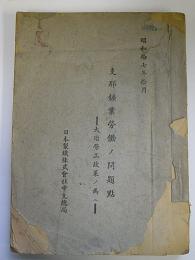 昭和拾七年拾月
支那鑛業勞働ノ問題點
―大冶勞工政策ノ爲ヘ―
日本製鐵株式會社中支總局